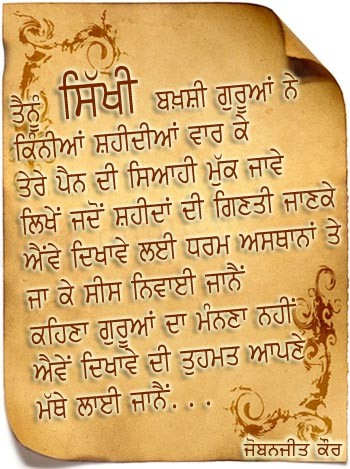 ਤੈਨੂੰ ਸਿੱਖੀ ਬਖ਼ਸ਼ੀ ਗੁਰੂਆਂ ਨੇ
ਕਿੰਨੀਆਂ ਸ਼ਹੀਦੀਆਂ ਵਾਰ ਕੇ
ਤੇਰੇ ਪੈਨ ਦੀ ਸਿਆਹੀ ਮੁੱਕ ਜਾਵੇ
ਲਿਖੇਂ ਜਦੋਂ ਸ਼ਹੀਦਾਂ ਦੀ ਗਿਣਤੀ ਜਾਣਕੇ
ਐਂਵੇ ਦਿਖਾਵੇ ਲਈ ਧਰਮ ਅਸਥਾਨਾਂ ਤੇ
ਜਾ ਕੇ ਸੀਸ ਨਿਵਾਈ ਜਾਨੈਂ
ਕਹਿਣਾ ਗੁਰੂਆਂ ਦਾ ਮੰਨਣਾ ਨਹੀਂ
ਐਵੇਂ ਦਿਖਾਵੇ ਦੀ ਤੁਹਮਤ ਆਪਣੇ
ਮੱਥੇ ਲਾਈ ਜਾਨੈਂ...
ਜੋਬਨਜੀਤ ਕੌਰ